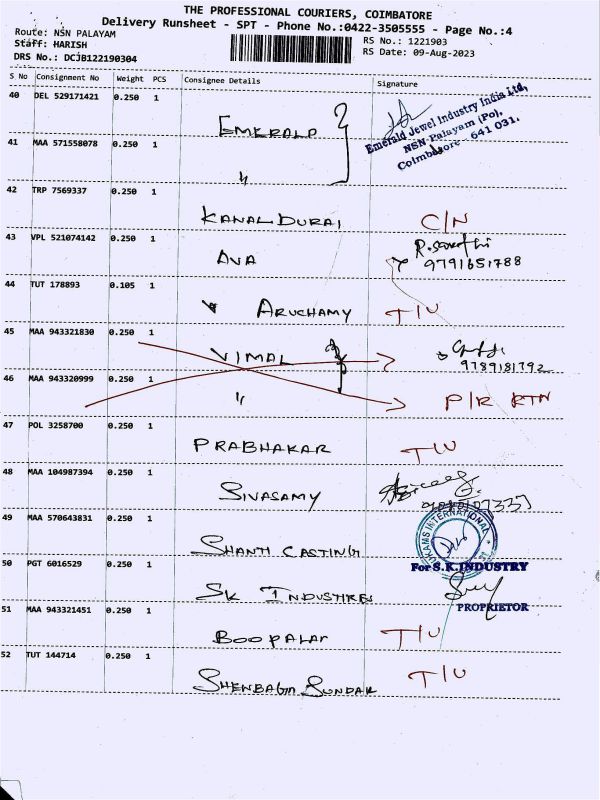 THE PROFESSIONAL COURIERS, COIMBATORE
Delivery Runsheet - SPT - Phone No.:0422-3505555 - Page No.:4
Route: NSN PALAYAM
RS No.: 1221903
Staff: HARISH
RS Date: 09-Aug-2023
DRS No.: DCJB122190304
S No Consignment No Weight PCS Consignee Details Signature
40 DEL 529171421 0.250 1
EMERALD
Emerald Jewel Industry India Ltd,
NSN-Palayam (Po),
Coimbatore - 641 031.
41 MAA 571558078 0.250 1
"
42 TRP 7569337 0.250 1
KANALDURAI C/N
43 VPL 521074142 0.250 1
AVA
9791651788
44 TUT 178893 0.105 1
ARUCHAMY T/U
45 MAA 943321830 0.250 1
VIMAL
9789181792
46 MAA 943320999 0.250 1
" P/R RTN
47 POL 3258700 0.250 1
PRABHAKAR T/U
48 MAA 104987394 0.250 1
SIVASAMY
49 MAA 570643831 0.250 1
SHANTI CASTING
50 PGT 6016529 0.250 1
For S.K.INDUSTRY
SK INDUSTRES
PROPRIETOR
51 MAA 943321451 0.250 1
BOOPALAN T/U
52 TUT 144714 0.250 1
SHENBAGA SUNDAR T/U